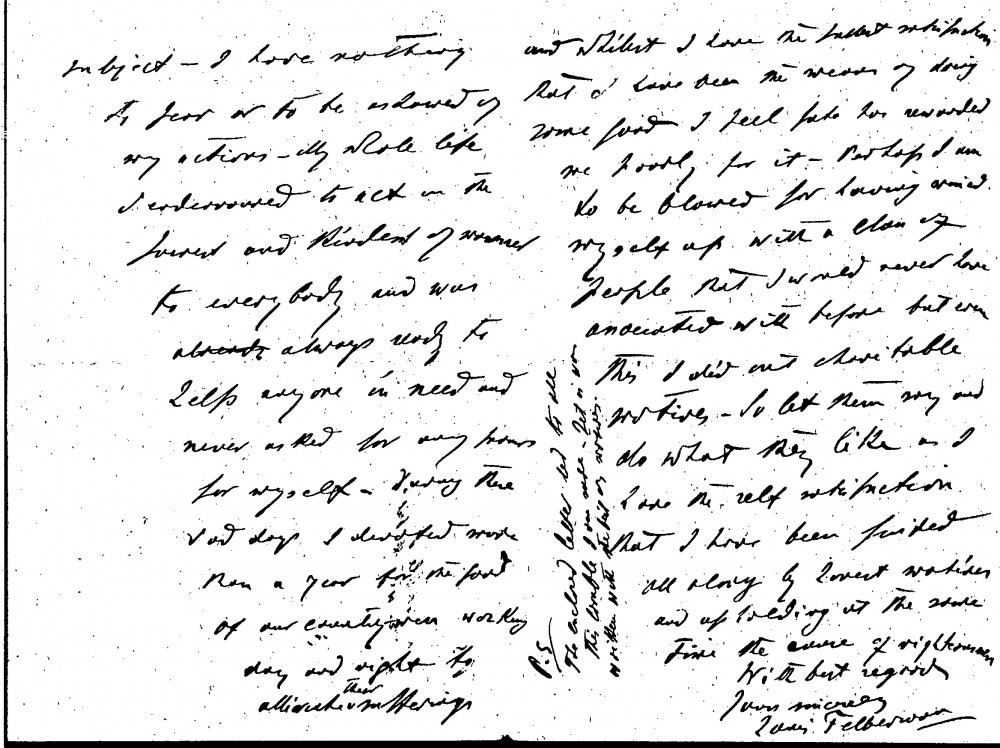 subject – I have nothing
to fear or to be ashamed of
my actions – My whole life
I endeavoured to act in the
and kindest of manner
to everybody and was
already always ready to
help anyone in need and
never asked for any
for myself – During these
sad days I devoted more
than a year for the good
of our countrymen working
day and night to
their sufferings
and whilst I have the fullest satisfaction
that I have been the means of doing
some good I feel fate has rewarded
me poorly for it – Perhaps I am
to be blamed for having mixed
myself up with a clan of
people that I would never have
associated with before but even
this I did out charitable
motives – So let them say and
do what they like as I
have the self satisfaction
that I have been guided
all along by honest motives
and upholding at the same
time the cause of righteousness
With best regards
Yours sincerely
Louis Felberman
P.S
The enclosed letter led to all
the trouble I am sure – yet it was
written with the best of motives.